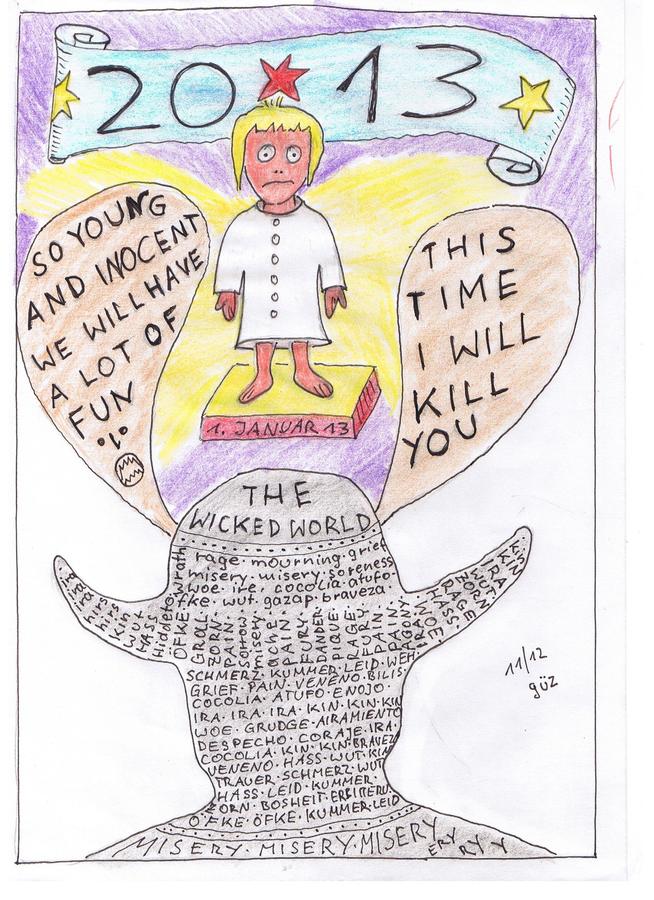 2013
SO YOUNG
AND INOCENT
WE WILL HAVE
A LOT OF
FUN
THIS
TIME
I WILL
KILL
YOU
1. JANUAR 13
THE
WICKED WORLD
rage mourning grief
misery. misery. soreness
woe. ire. cocolia. atufo
öfke. wut. gazap. braveza
wrath
Hiddeto
HASS
Wut
Kin
ÖFKE
GROLL
ZORN
PAIN
sorrow
misery
ache
PAIN
FURY
PAIN
SCHMERZ. KUMMER. LEID. WEH
GRIEF. PAIN. VENENO. BILIS
COCOLIA. ATUFO. ENOJO
IRA. IRA. IRA. KIN. KIN. KIN
WOE. GRUDGE. AIRAMIENTO
DESPECHO. CORAJE. IRA.
COCOLIA. KIN. KIN. BRAVEZA
VENENO. HASS. WUT. KIN
TRAUER. SCHMERZ. WUT
HASS. LEID. KUMMER.
ZORN. BOSHEIT.
ÖFKE. ÖFKE. KUMMER. LEID
MISERY. MISERY. MISERY
ERY
RY
Y
11/12
güz